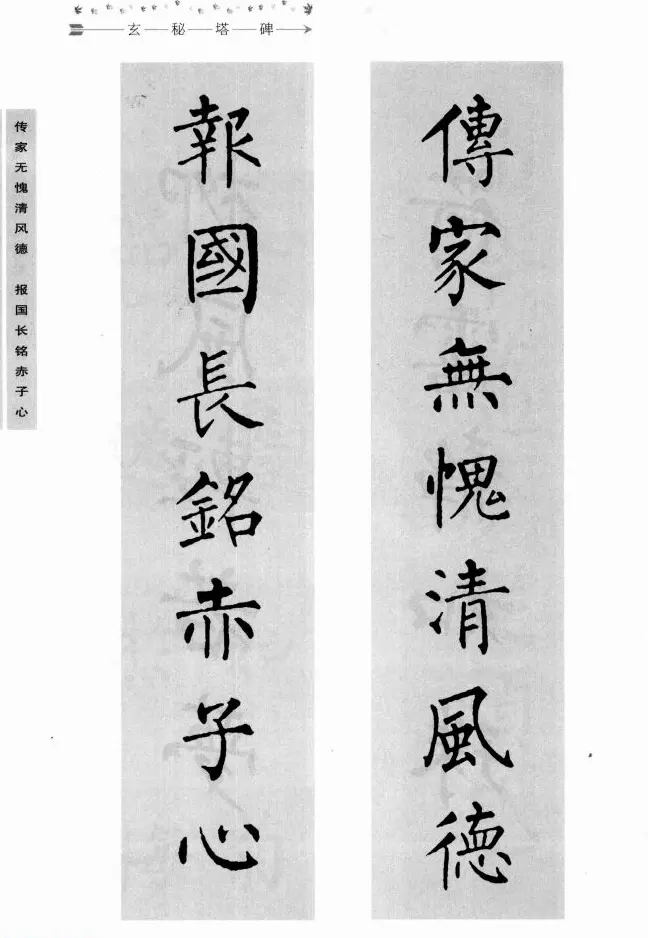 玄秘塔碑
傳家無愧清風德
報國長銘赤子心
传家无愧清风德 报国长铭赤子心